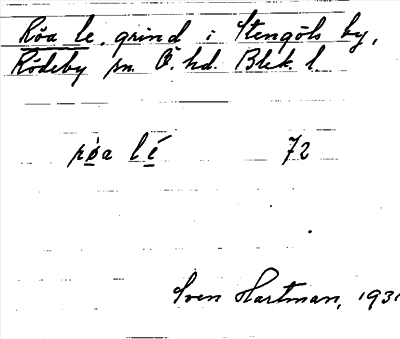 Röa le, grind i Stengöls by,
Rödeby sn. Ö. hd. Blek. l.
rø̀a lé 72
Sven Hartman, 1931